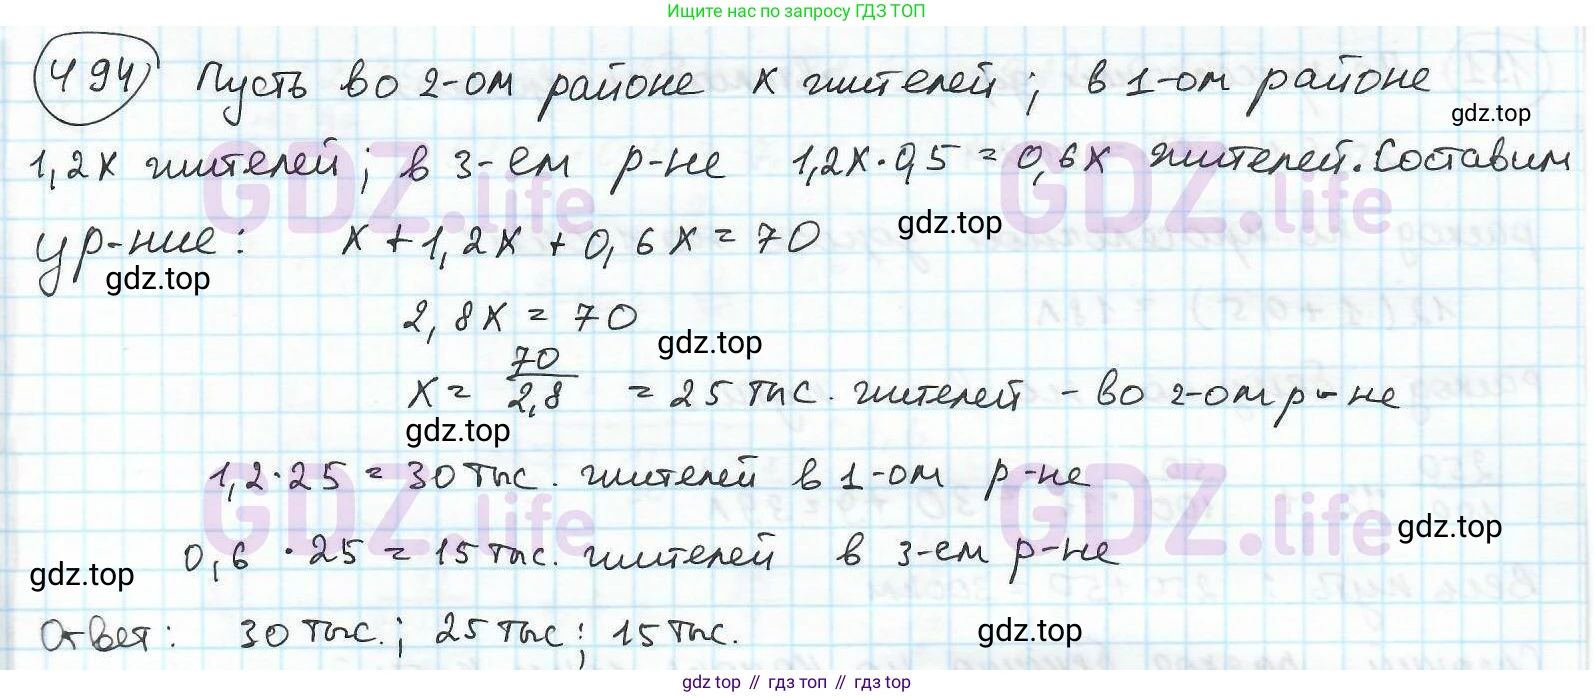 Ищите нас по запросу ГДЗ ТОП
494 Пусть во 2-ом районе x жителей; в 1-ом районе
gdz.top
1,2x жителей; в 3-ем р-не 1,2x·0,5 = 0,6x жителей. Составим
GDZ.life GDZ.life
ур-ние: x + 1,2x + 0,6x = 70
gdz.top
gdz.top
2,8x = 70
gdz.top
x = 70/2,8 = 25 тыс. жителей - во 2-ом р-не
gdz.top
1,2·25 = 30 тыс. жителей в 1-ом р-не
GDZ.life GDZ.life
gdz.top
0,6 · 25 = 15 тыс. жителей в 3-ем р-не
gdz.top
Ответ: 30 тыс.; 25 тыс; 15 тыс.
gdz.top
gdz top // гдз топ // gdz top